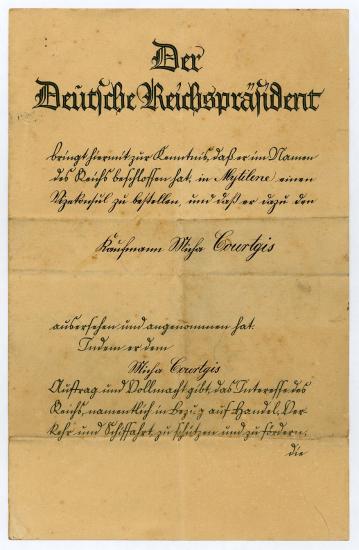 Der
Deutsche Reichspräsident
bringt hiermit zur Kenntnis, daß er im Namen
des Reichs beschlossen hat, in Mytilene einen
Vizekonsul zu bestellen, und daß er dazu den
Kaufmann Micha Courtgis
ausersehen und angenommen hat.
Indem er dem
Micha Courtgis
Auftrag und Vollmacht gibt, das Interesse des
Reichs, namentlich in Bezug auf Handel, Ver-
kehr und Schiffahrt zu schützen und zu fördern,
die